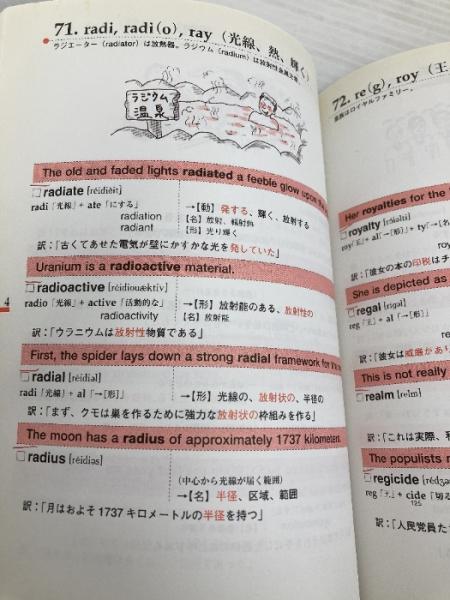 71. radi, radi(o), ray (光線、熱、輝く)
ラジエーター (radiator) は放熱器。ラジウム (radium) は放射性金属元素。
ラジウム
温泉
The old and faded lights radiated a feeble glow upon
radiate [réidièit]
radi「光線」+ ate「にする」 →【動】発する、輝く、放射する
radiation 【名】放射、輻射熱
radiant 【形】光り輝く
訳:「古くてあせた電気が壁にかすかな光を発していた」
Uranium is a radioactive material.
radioactive [réidiouæktiv]
radio「光線」+ active「活動的な」 →【形】放射能のある、放射性の
radioactivity 【名】放射能
訳:「ウラニウムは放射性物質である」
First, the spider lays down a strong radial framework for
radial [réidiəl]
radi「光線」+ al「→[形]」 →【形】光線の、放射状の、半径の
訳:「まず、クモは巣を作るために強力な放射状の枠組みを作る」
The moon has a radius of approximately 1737 kilometers.
radius [réidiəs]
(中心から光線が届く範囲)
→【名】半径、区域、範囲
訳:「月はおよそ1737キロメートルの半径を持つ」
4
72. re(g), roy (王
Her royalties for the
royalty [rɔ́iəlti]
roy「王」+ al「→[形]」+ ty「→
訳:「彼女の本の印税は
She is depicted as
regal [rí:gəl]
reg「王」+ al「→[形]」
訳:「彼女は威厳があり
This is not really
realm [relm]
訳:「これは実際、
The populists
regicide [rédʒə
reg「王」+ cide「切る
125
訳:「人民党員た